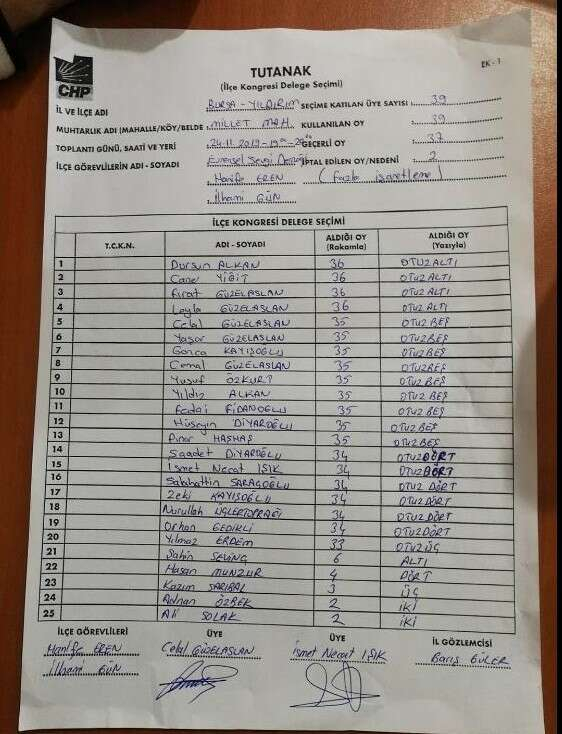 CHP
TUTANAK
(İlçe Kongresi Delege Seçimi)
EK-1
İL VE İLÇE ADI BURSA - YILDIRIM SEÇİME KATILAN ÜYE SAYISI 39
MUHTARLIK ADI (MAHALLE/KÖY/BELDE MİLLET MAH. KULLANILAN OY 39
TOPLANTI GÜNÜ, SAATİ VE YERİ 24.11.2019 GEÇERLİ OY 37
İLÇE GÖREVLİLERİN ADI - SOYADI Evrensel Sevgi İPTAL EDİLEN OY/NEDENİ 2
Hanife EREN (Fazla işaretleme)
İlhami GÜN
İLÇE KONGRESİ DELEGE SEÇİMİ
T.C.K.N. ADI - SOYADI ALDIĞI OY (Rakamla) ALDIĞI OY (Yazıyla)
1 Dursun ALKAN 36 OTUZALTI
2 Caner YİĞİT 36 OTUZALTI
3 Fırat GÜZELASLAN 36 OTUZALTI
4 Leyla GÜZELASLAN 36 OTUZ ALTI
5 Celal GÜZELASLAN 35 OTUZ BEŞ
6 Yaşar GÜZELASLAN 35 OTUZBEŞ
7 Gonca KAYIŞOĞLU 35 OTUZBEŞ
8 Cemal GÜZELASLAN 35 OTUZBEŞ
9 Yusuf ÖZKURT 35 OTUZBEŞ
10 Yıldız ALKAN 35 OTUZ BEŞ
11 Fedai FİDANOĞLU 35 OTUZ BEŞ
12 Hüseyin DİYAROĞLU 35 OTUZBEŞ
13 Pınar HAŞHAŞ 35 OTUZBEŞ
14 Saadet DİYAROĞLU 34 OTUZDÖRT
15 İsmet Necat IŞIK 34 OTUZDÖRT
16 Sabahattin SARAÇOĞLU 34 OTUZ DÖRT
17 Zeki KAYIŞOĞLU 34 OTUZDÖRT
18 Nurullah ÜÇLERTOPRAĞI 34 OTUZDÖRT
19 Orhan GEDİRLİ 34 OTUZDÖRT
20 Yılmaz ERDEM 33 OTUZÜÇ
21 Şahin SEVİNÇ 6 ALTI
22 Hasan MUNZUR 4 DÖRT
23 Kazım 3 ÜÇ
24 Adnan ÖZBEK 2 İKİ
25 Ali SOLAK 2 İKİ
İLÇE GÖREVLİLERİ ÜYE ÜYE İL GÖZLEMCİSİ
Hanife EREN Celal GÜZELASLAN İsmet Necat IŞIK Barış GÜLER
İlhami GÜN